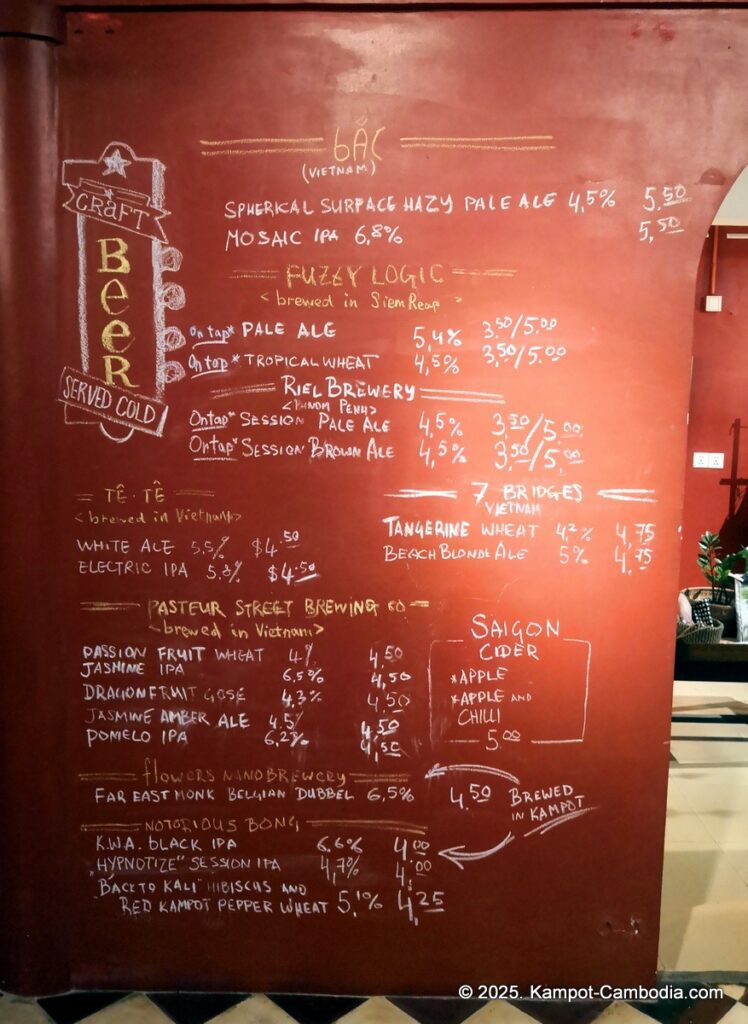 CRAFT
BEER
SERVED COLD
BẤC
(VIETNAM)
SPHERICAL SURPACE HAZY PALE ALE 4,5% 5,50
MOSAIC IPA 6,8% 5,50
FUZZY LOGIC
<brewed in Siem Reap>
On tap* PALE ALE 5,4% 3,50/5.00
On tap* TROPICAL WHEAT 4,5% 3,50/5.00
RIEL BREWERY
<PHNOM PENH>
On tap* SESSION PALE ALE 4,5% 3,50/5,00
On tap* SESSION BROWN ALE 4,5% 3,50/5,00
TÊ·TÊ
<brewed in Vietnam>
WHITE ALE 5,5% $4,50
ELECTRIC IPA 5,8% $4,50
7 BRIDGES
VIETNAM
TANGERINE WHEAT 4,2% 4,75
BEACH BLONDE ALE 5% 4,75
PASTEUR STREET BREWING CO
<brewed in Vietnam>
PASSION FRUIT WHEAT 4% 4,50
JASMINE IPA 6,5% 4,50
DRAGONFRUIT GOSE 4,3% 4,50
JASMINE AMBER ALE 4.5% 4,50
POMELO IPA 6,2% 4,50
SAIGON
CIDER
*APPLE
*APPLE AND
CHILLI
5.00
flowers NANOBREWERY
FAR EAST MONK BELGIAN DUBBEL 6,5% 4,50
BREWED
IN KAMPOT
NOTORIOUS BONG
K.W.A. BLACK IPA 6,6% 4,00
"HYPNOTIZE" SESSION IPA 4,7% 4,00
"BACK TO KALI" HIBISCUS AND
RED KAMPOT PEPPER WHEAT 5,1% 4,25
© 2025. Kampot-Cambodia.com